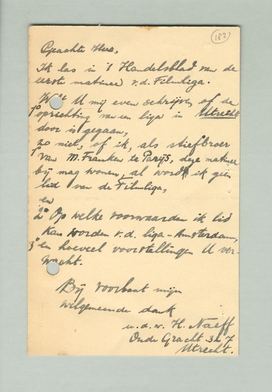 (182)
Geachte Heer,
Ik las in 't Handelsblad van de
eerste matinee v.d. Filmliga.
U mij even schrijven of de
1° oprichting van een liga in Utrecht
door is gegaan,
zo niet, of ik, als stiefbroer
van M. Franken te Parijs, deze matinee
bij mag wonen, al word ik geen
lid van de Filmliga,
en
2° Op welke voorwaarden ik lid
kan worden v.d. liga - Amsterdam,
3° en hoeveel voorstellingen U ver-
wacht.
Bij voorbaat mijn
welgemeende dank
u.d.w. H. Naeff
Oude Gracht 317
Utrecht.